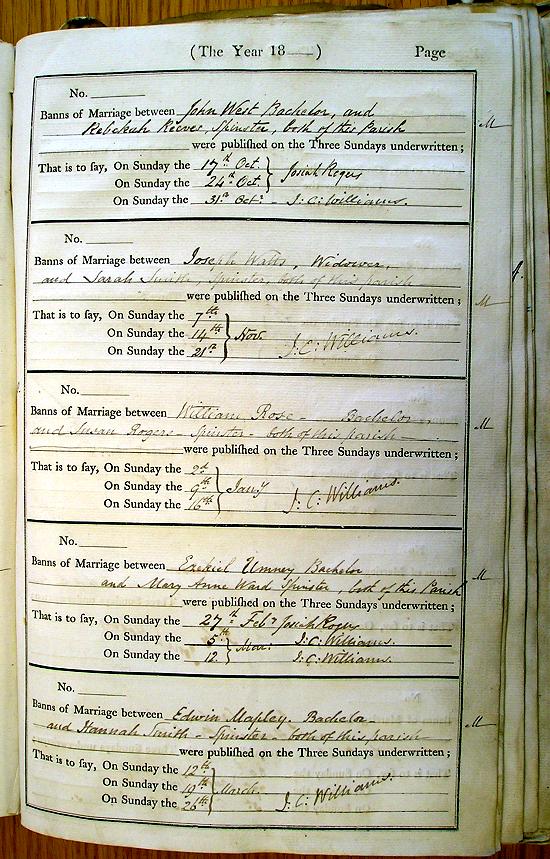 (The Year 18——) Page
No.
Banns of Marriage between John West Bachelor, and
Rebekah Reeves, Spinster, both of this Parish
were publiſhed on the Three Sundays underwritten;
That is to ſay, On Sunday the 17th Oct. Josiah Rogers
On Sunday the 24th Oct.
On Sunday the 31st Octr - J. C. Williams.
M
No.
Banns of Marriage between Joseph Watts, Widower,
and Sarah Smith, Spinster, both of this parish
were publiſhed on the Three Sundays underwritten;
That is to ſay, On Sunday the 7th
On Sunday the 14th Novr J. C. Williams.
On Sunday the 21st
M
No.
Banns of Marriage between William Rose - Bachelor -
and Susan Rogers - Spinster - both of this parish -
were publiſhed on the Three Sundays underwritten;
That is to ſay, On Sunday the 2d
On Sunday the 9th Jany J. C. Williams.
On Sunday the 16th
M
No.
Banns of Marriage between Ezekiel Umney Bachelor
and Mary Anne Ward Spinster, both of this Parish
were publiſhed on the Three Sundays underwritten;
That is to ſay, On Sunday the 27th Febr Josiah Rogers
On Sunday the 5th Mar: J. C. Williams.
On Sunday the 12. J. C. Williams.
M
No.
Banns of Marriage between Edwin Mapley. Bachelor -
and Hannah Smith - Spinster - both of this parish
were publiſhed on the Three Sundays underwritten;
That is to ſay, On Sunday the 12th
On Sunday the 19th March. J. C. Williams.
On Sunday the 26th
M